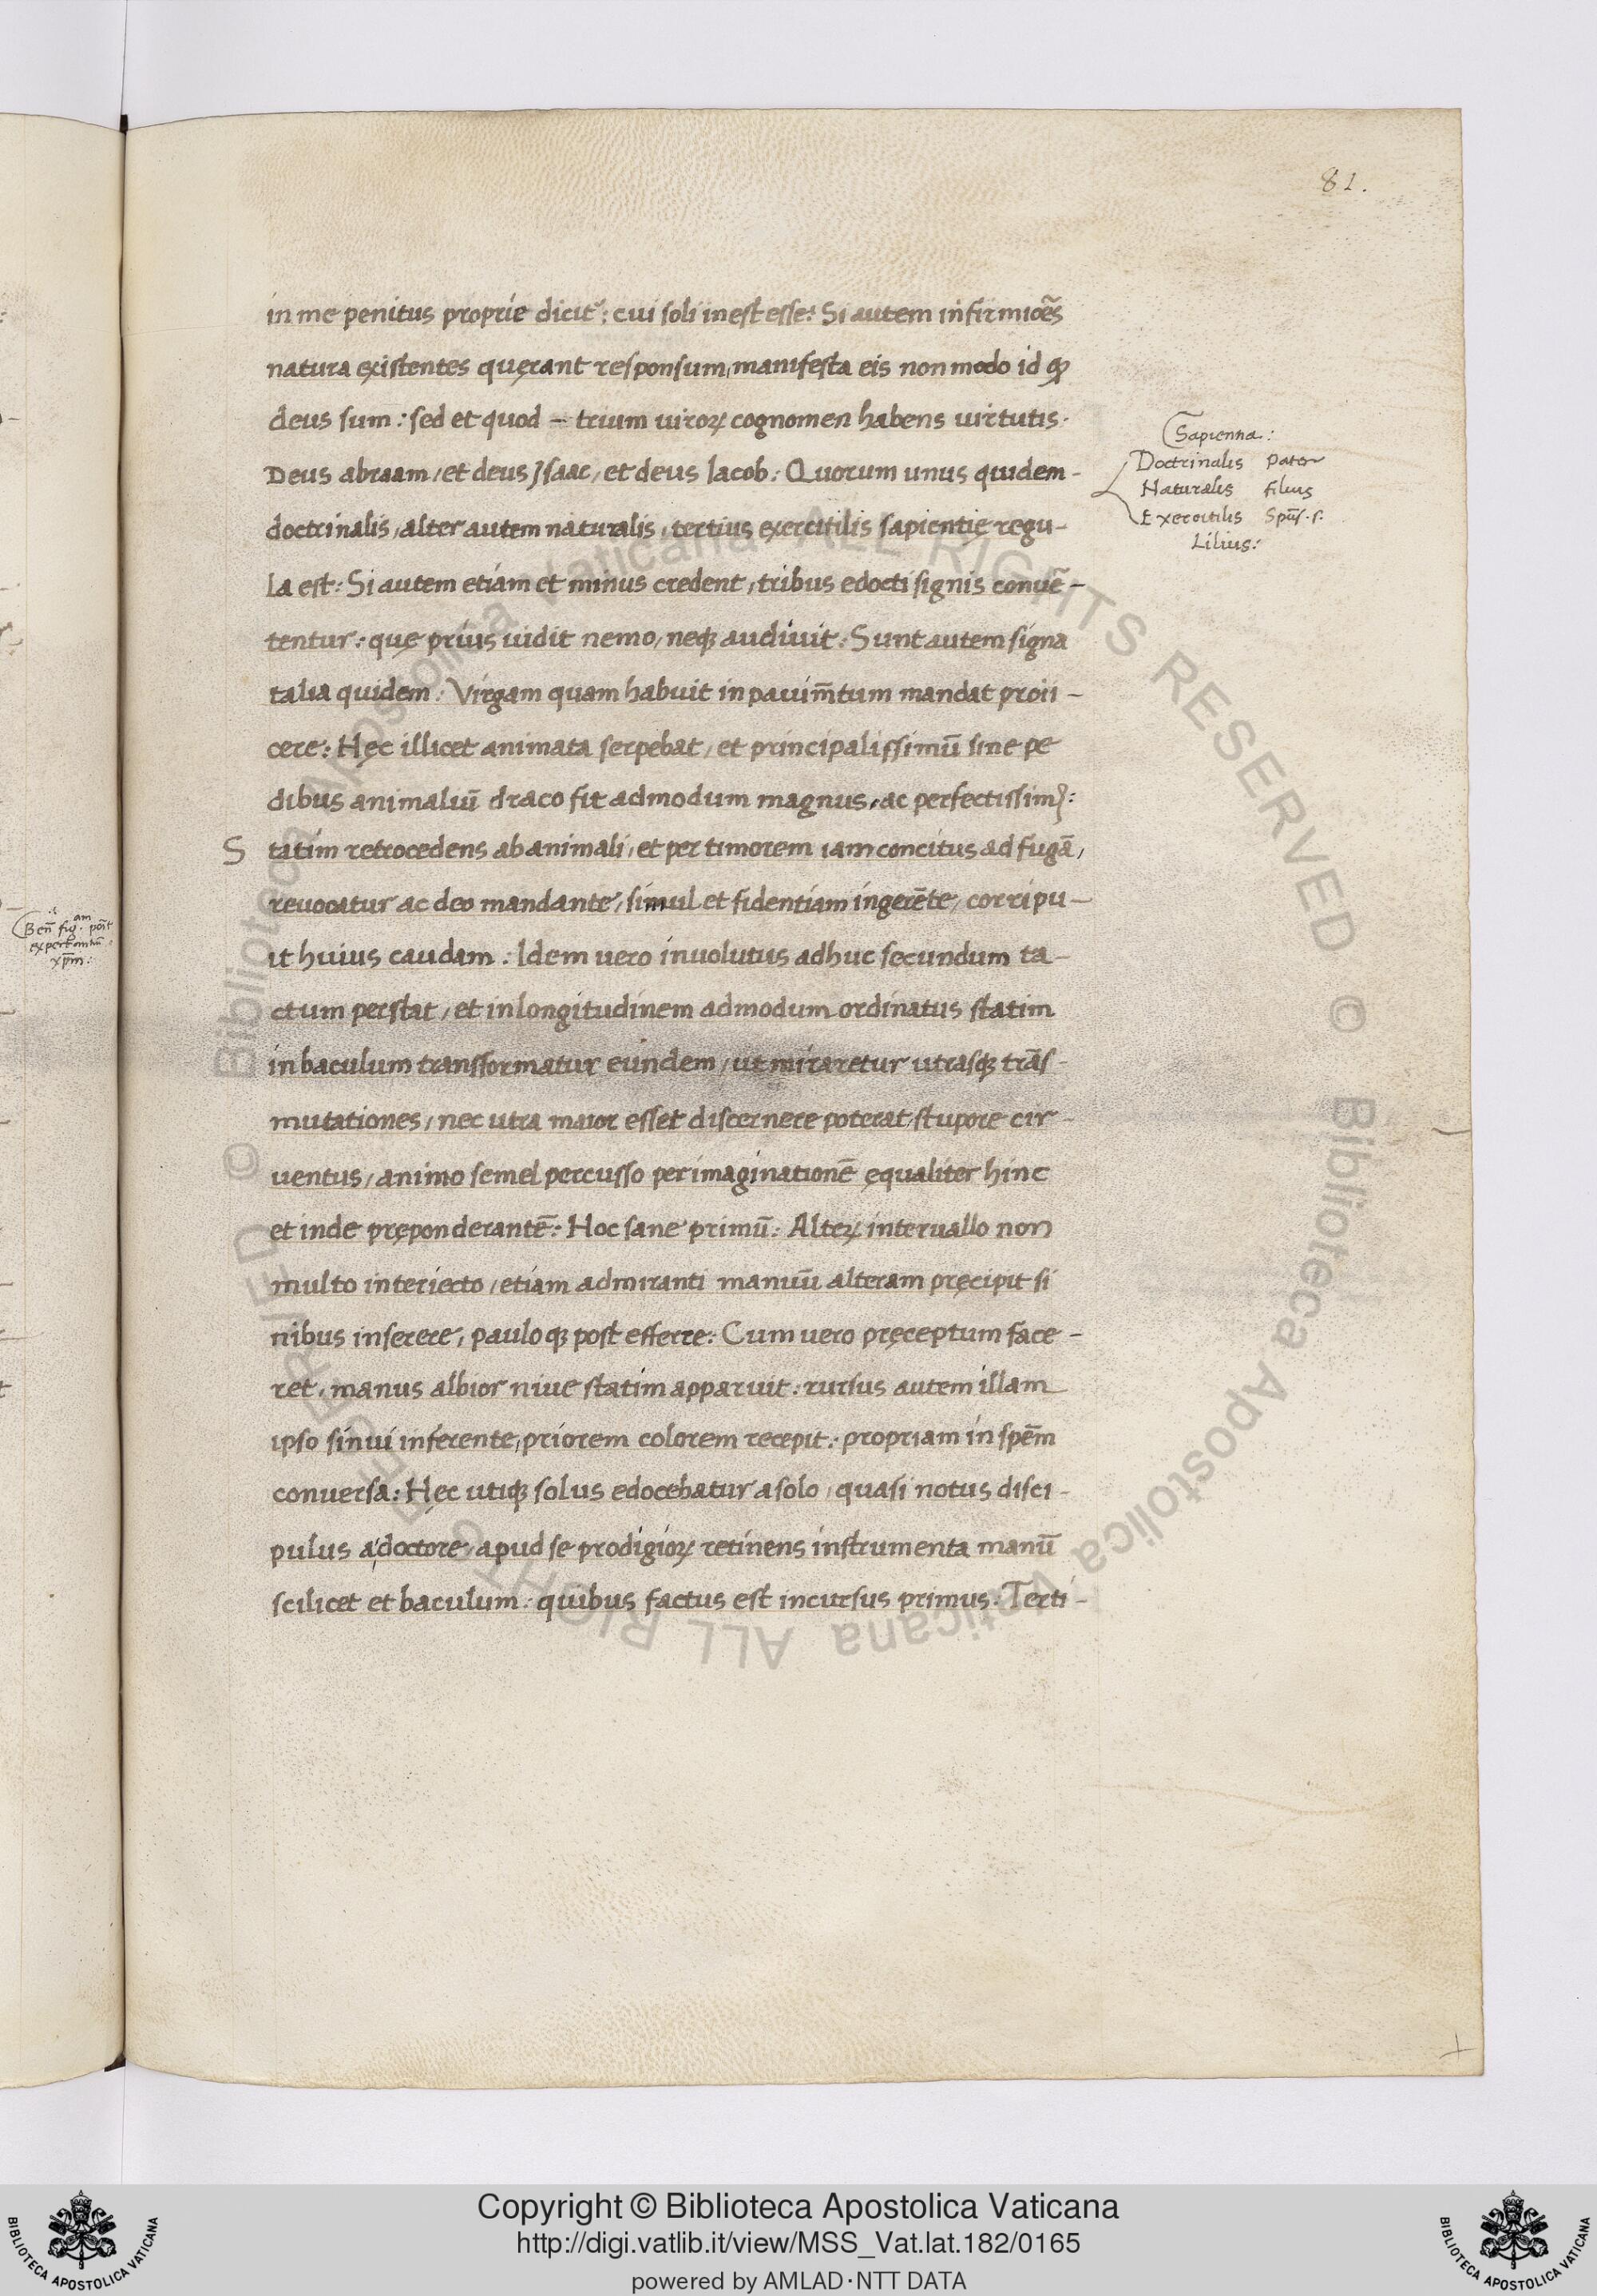 81.
in me penitus proprie dicit᷑: cui soli inest esse: Si autem infirmiōes
natura existentes quęrant responsum, manifesta eis non modo id qꝫ
deus sum: sed et quod – trium uiroꝝ cognomen habens uirtutis.
Deus abraam, et deus Isaac, et deus Iacob: Quorum unus quidem -
doctrinalis, alter autem naturalis, tertius exercitilis sapientię regu-
la est: Si autem etiam et minus credent, tribus edocti signis conuē-
tentur: quę prius uidit nemo, neqꝫ audiuit: Sunt autem signa
talia quidem: Virgam quam habuit in pauim̄tum mandat proii-
cere: Hęc illicet animata serpebat, et principalissimū sine pe
dibus animaliū draco fit admodum magnus, ac perfectissimꝰ:
S tatim retrocedens ab animali, et per timorem iam concitus ad fugā,
reuocatur ac deo mandante, simul et fidentiam ingerēte, corripu-
it huius caudam: Idem uero inuolutus adhuc secundum ta-
ctum perstat, et in longitudinem admodum ordinatus statim
in baculum transformatur eundem, ut miraretur utrasqꝫ trās-
mutationes, nec utra maior esset discernere poterat, stupore cir-
uentus, animo semel percusso per imaginationē ęqualiter hinc
et inde pręponderantē: Hoc sane primū: Alteꝝ interuallo non
multo interiecto, etiam admiranti manuū alteram pręcipit si
nibus inserere, pauloqꝫ post efferre: Cum uero pręceptum face-
ret, manus albior niue statim apparuit: rursus autem illam
ipso sinui inferente, priorem colorem recepit: propriam in spēm
conuersa: Hęc utiqꝫ solus edocebatur a solo, quasi notus disci-
pulus a doctore, apud se prodigioꝝ retinens instrumenta manū
scilicet et baculum: quibus factus est incursus primus. Terti-
Sapientia:
Doctrinalis Pater
Naturalis filius
Exercitilis Spūs. s.
Lilius:
expectantiū
xp̄m:
© Biblioteca Apostolica Vaticana ALL RIGHTS RESERVED © Biblioteca Apostolica Vaticana ALL RIGHTS RESERVED
Copyright © Biblioteca Apostolica Vaticana
http://digi.vatlib.it/view/MSS_Vat.lat.182/0165
powered by AMLAD·NTT DATA
BIBLIOTECA APOSTOLICA VATICANA
BIBLIOTECA APOSTOLICA VATICANA